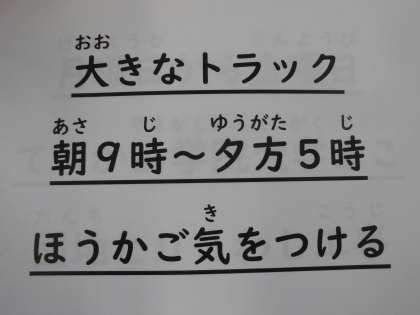 おお
大きなトラック
あさ じ ゆうがた じ
朝9時～夕方5時
き
ほうかご気をつける